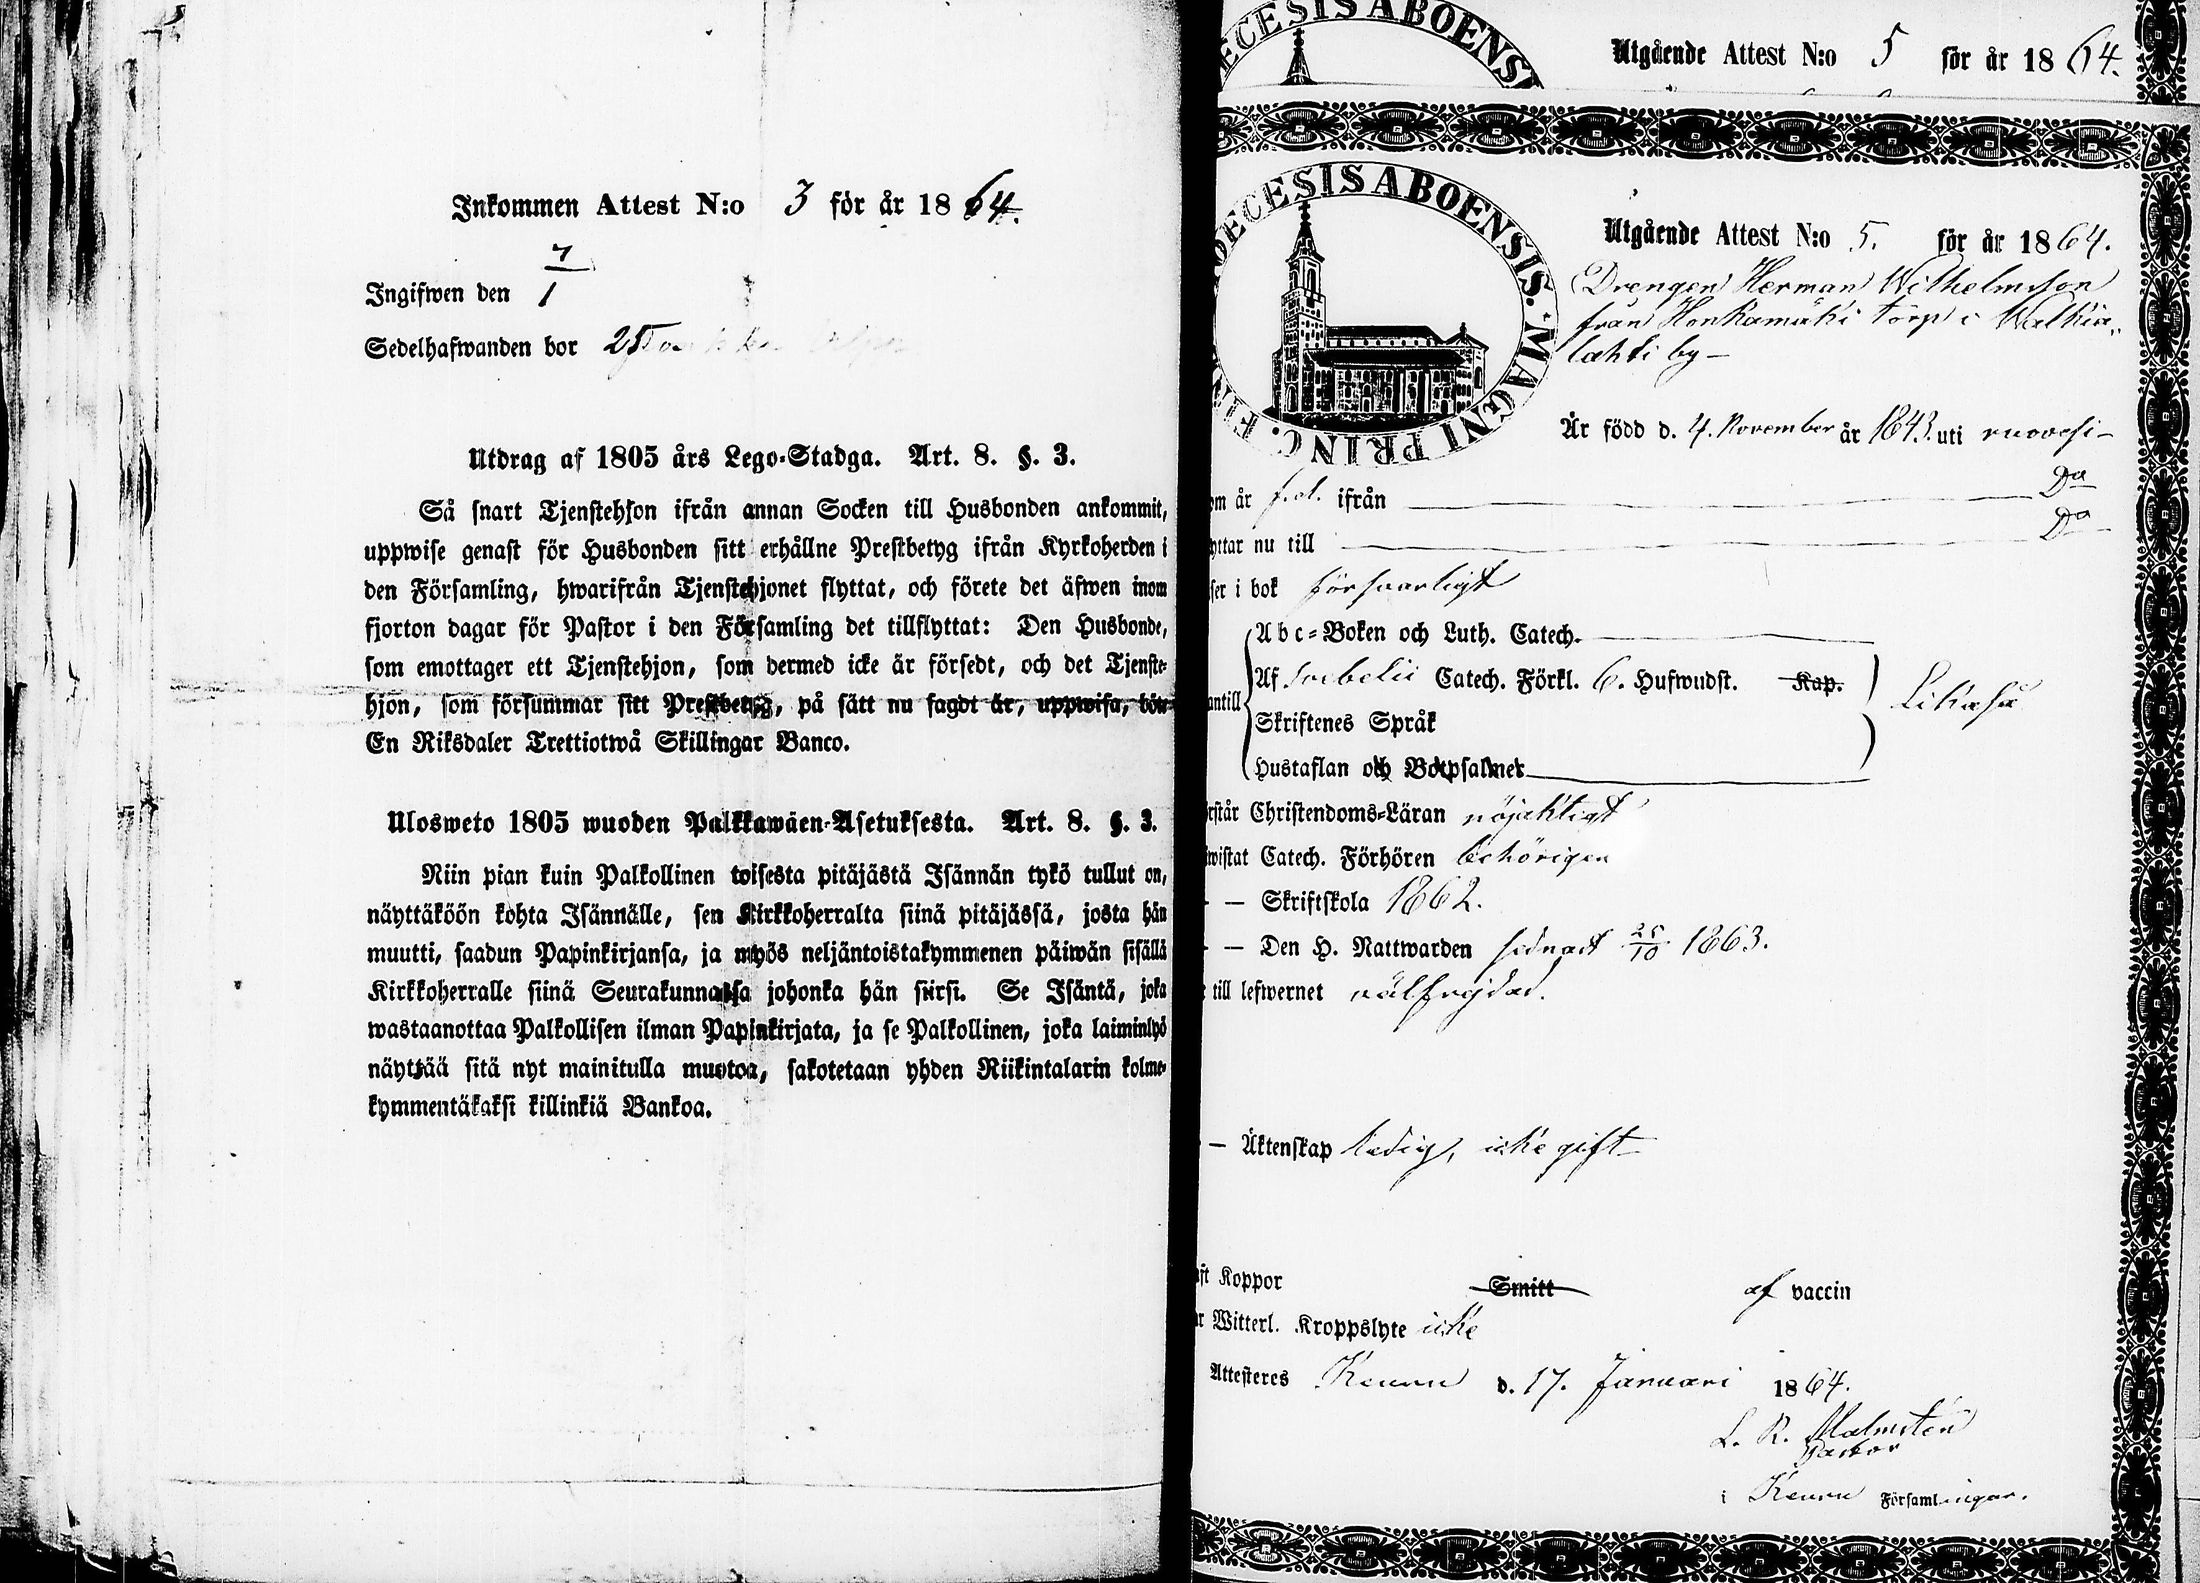 Inkommen Attest N:o 3 för år 1864.
Ingifwen den 7/1
Sedelhafwanden bor
Utdrag af 1805 års Lego-Stadga. Art. 8. §. 3.
Så snart Tjenstehjon ifrån annan Socken till Husbonden ankommit,
uppwise genast för Husbonden sitt erhållne Prestbetyg ifrån Kyrkoherden i
den Församling, hwarifrån Tjenstehjonet flyttat, och förete det äfwen inom
fjorton dagar för Pastor i den Församling det tillflyttat: Den Husbonde,
som emottager ett Tjenstehjon, som dermed icke är försedt, och det Tjenste-
hjon, som försummar sitt Prestbetyg, på sätt nu sagdt är, uppwisa, böte
En Riksdaler Trettiotwå Skillingar Banco.
Ulosweto 1805 wuoden Palkkawäen-Asetuksesta. Art. 8. §. 3.
Niin pian kuin Palkollinen toisesta pitäjästä Isännän tykö tullut on,
näyttäköön kohta Isännälle, sen Kirkkoherralta siinä pitäjässä, josta hän
muutti, saadun Papinkirjansa, ja myös neljäntoistakymmenen päiwän sisällä
Kirkkoherralle siinä Seurakunnassa johonka hän siirsi. Se Isäntä, joka
wastaanottaa Palkollisen ilman Papinkirjata, ja se Palkollinen, joka laiminlyö
näyttää sitä nyt mainitulla muotoa, sakotetaan yhden Riikintalarin kolme-
kymmentäkaksi killinkiä Bankoa.
ECESIS ABOENSI
Utgående Attest N:o 5 för år 1864.
OECESIS ABOENSIS. MAGNI PRINC. FIN
Utgående Attest N:o 5. för år 1864.
Drengen Herman Wilhelmsson
från Honkamäki torp i Walkia-
lahti by —
Är född d. 4. November år 1843. uti ruovesi —
om år f.d. ifrån — Do
yttar nu till — Do
ser i bok försvarligt
Abc-Boken och Luth. Catech.
Af Svebelii Catech. Förkl. 6. Hufwudst. Kap.
antill
Likaså
Skriftenes Språk
Hustaflan och Botpsalmer
rstår Christendoms-Läran nöjaktigt
wistat Catech. Förhören behörigen
— Skriftskola 1862.
— Den H. Nattwarden sednast 25/10 1863.
till lefwernet välfrejdad.
— Äktenskap ledig, icke gift
ft Koppor Smitt af vaccin
r Witterl. Kroppslyte icke
Attesteres Keuru d. 17. Januari 1864.
L. R. Malmstén
Pastor
i Keuru Församlingar.